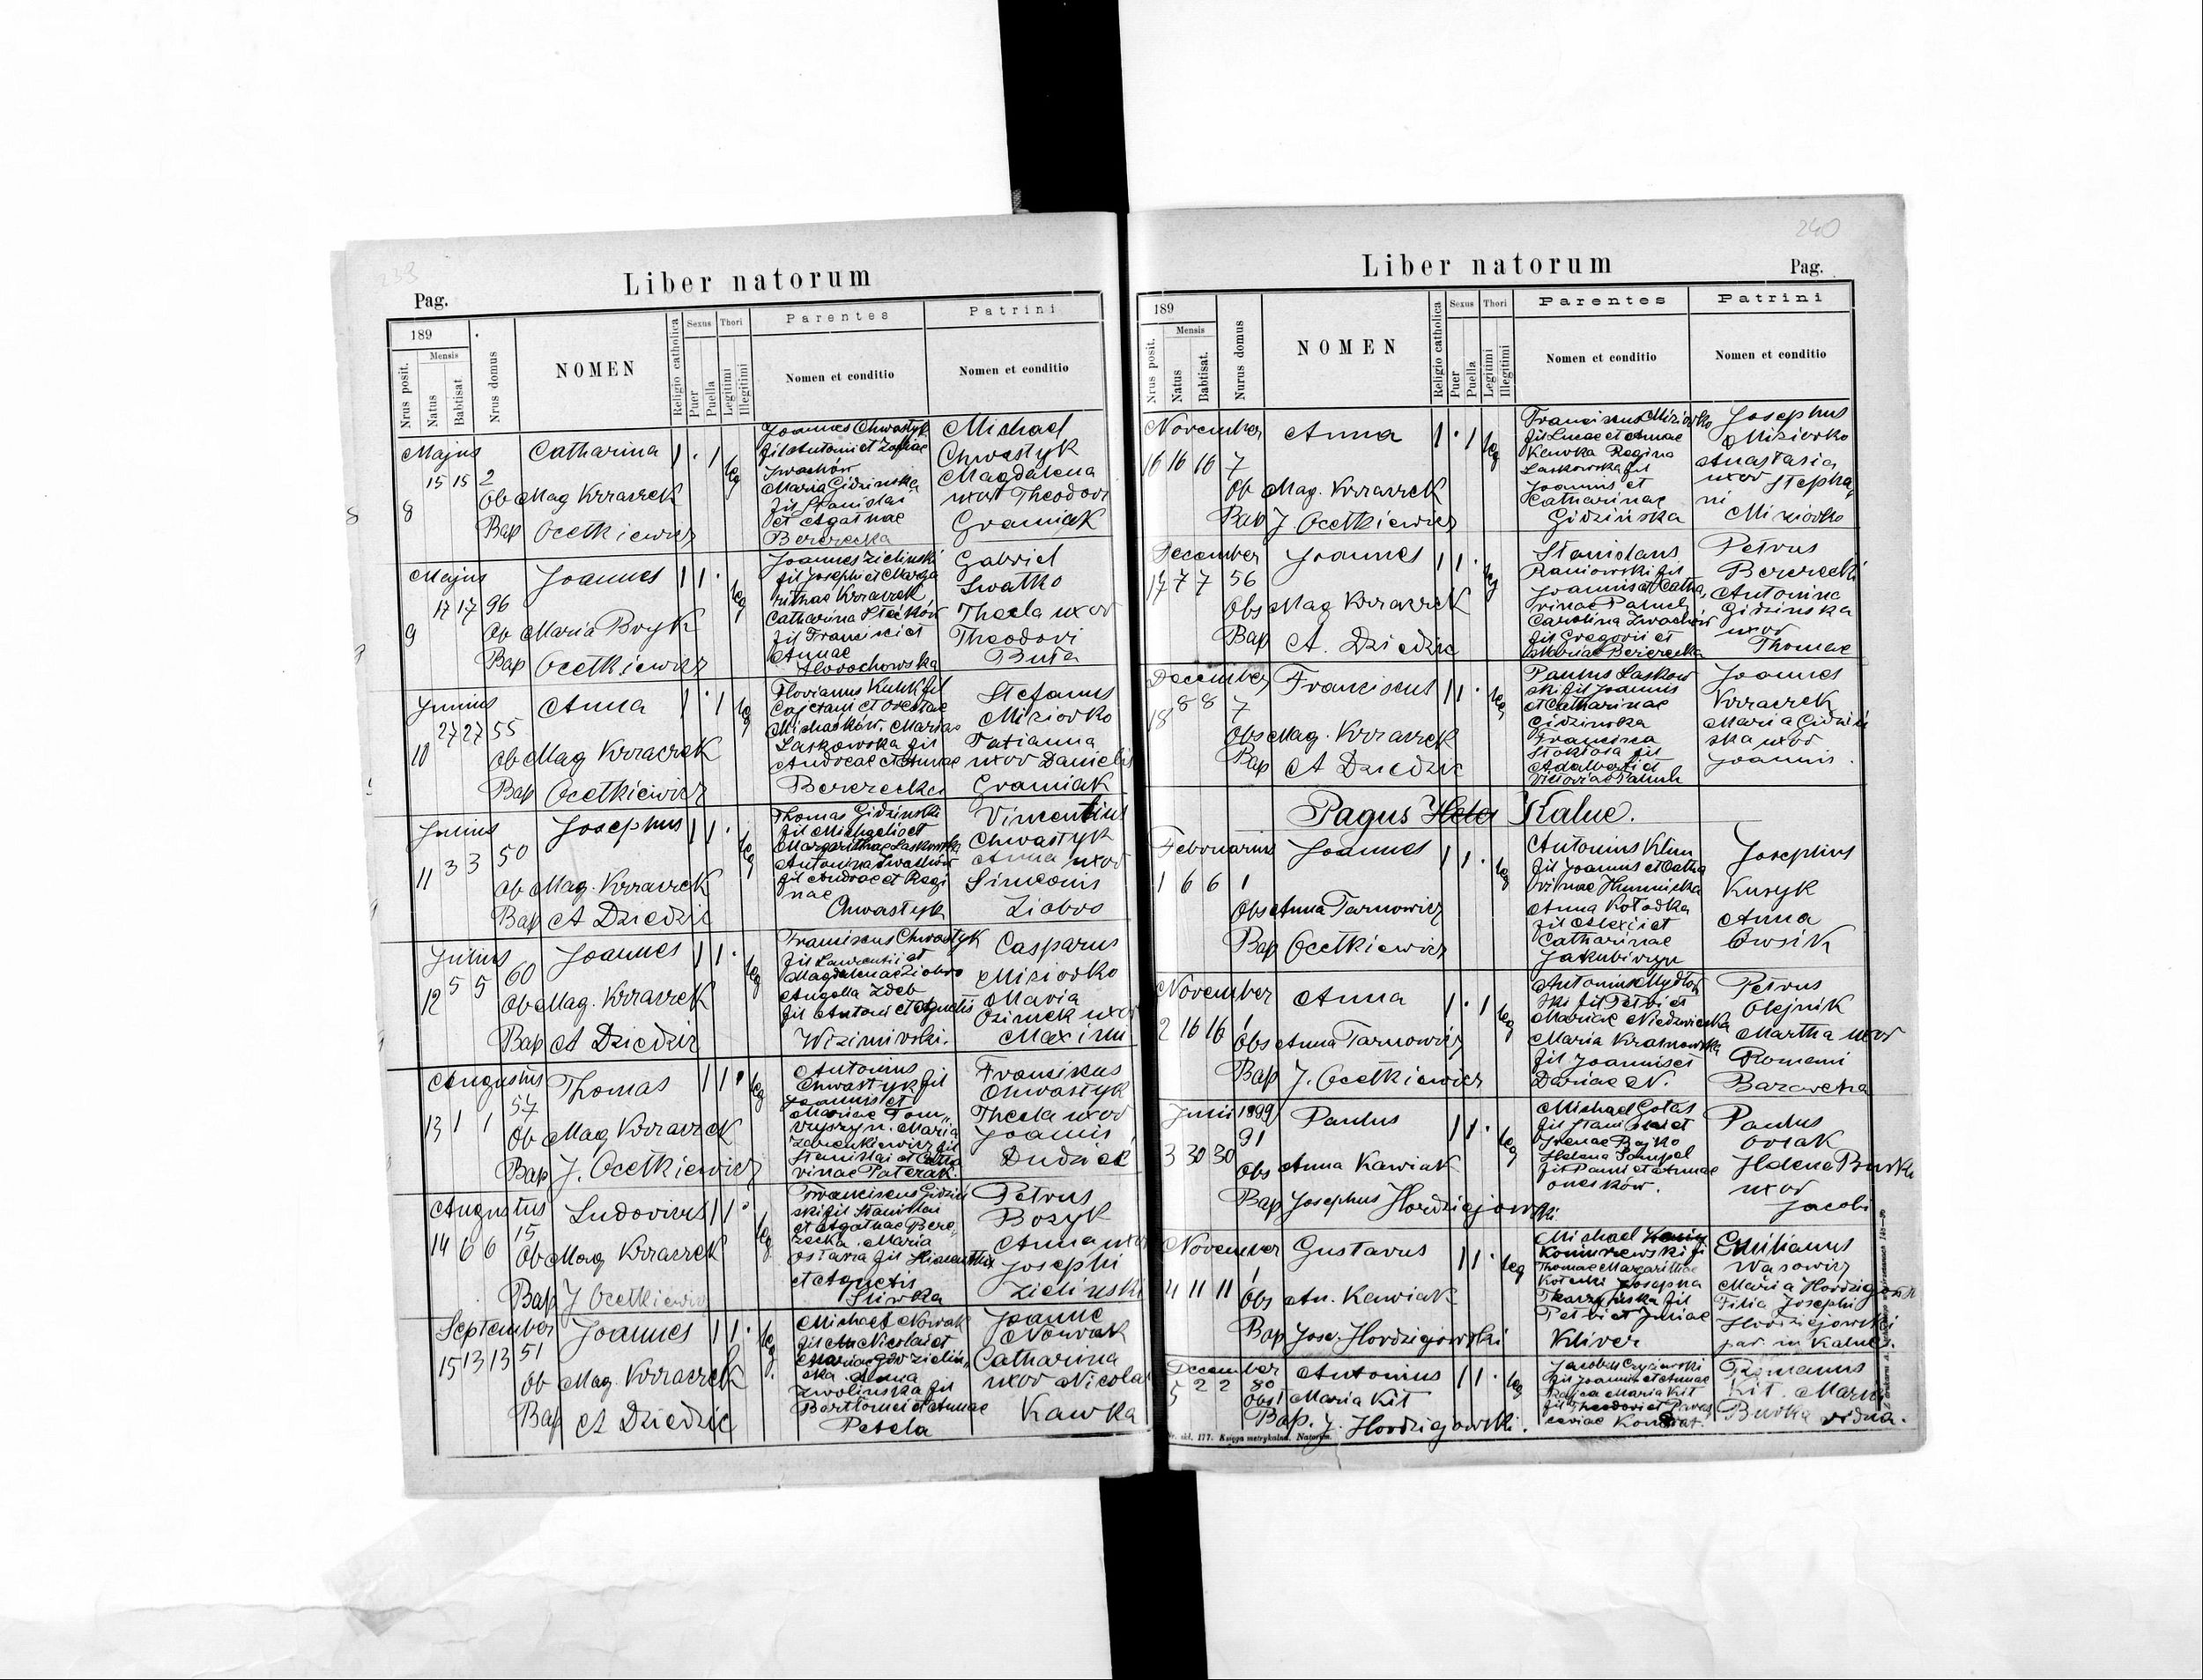 239
Liber natorum
Pag.
189
Mensis
Nrus posit.
Natus
Babtisat.
Nrus domus
NOMEN
Religio catholica
Sexus
Puer
Puella
Thori
Legitimi
Illegitimi
Parentes
Nomen et conditio
Patrini
Nomen et conditio
Majus
8 15 15 2
Catharina
leg
Ob Mag Krzaczek
Bap Ocetkiewicz
Joannes Chwastyk
fil Antonii et Zofiae
Iwachów
Maria Gidzinska
fil Stanislai
et Agathae
Berezecka
Michael
Chwastyk
Magdalena
uxor Theodori
Graniak
Majus
9 17 17 96
Joannes
leg
Ob Maria Bryk
Bap Ocetkiewicz
Joannes Zielinski
fil Josephi et Marga
rithae Krzaczek
Catharina Steików
fil Francisci et
Annae
Horochowska
Gabriel
Swatko
Thecla uxor
Theodori
Buta
Junius
10 27 27 55
Anna
leg
Ob Mag Krzaczek
Bap Ocetkiewicz
Florianus Kulik fil
Cajetani et
Michasków. Maria
Laskowska fil
Andreae et Annae
Berezecka
Stefanus
Miziorko
Tatianna
uxor Danielis
Graniak
Julius
11 3 3 50
Josephus
leg
Ob Mag. Krzaczek
Bap A Dziedzic
Thomas Gidzinski
fil Michaeli et
Margarithae Laskowska
Antonina Iwachów
fil Andreae et Regi
nae
Chwastyk
Vincentius
Chwastyk
Anna uxor
Simeonis
Ziobro
Julius
12 5 5 60
Joannes
leg
Ob Mag. Krzaczek
Bap A Dziedzic
Franciscus Chwastyk
fil Laurentii et
Magdalenae Ziobro
Angella Zdeb
fil Antoni et Agnetis
Wizimirski.
Casparus
Miziorko
Maria
Ozimek uxor
Maximi
Augustus
13 1 1 57
Thomas
leg
Ob Mag Krzaczek
Bap J. Ocetkiewicz
Antonius
Chwastyk fil
Joannis et
Mariae Tom„
Maria
fil
Stanislai et Catha
rinae Paterak.
Franciscus
Chwastyk
Thecla uxor
Joannis
Dudziak
Augustus
14 6 6 15
Ludovicus
leg
Ob Mag Krzaczek
Bap J Ocetkiewicz
Franciscus Gidzin
ski fil Stanislai
et Agathae Bere„
zecka. Maria
fil
et Agnetis
Sliwka
Petrus
Bozyk
Anna uxor
Josephi
Zielinski
September
15 13 13 51
Joannes
leg
Ob Mag. Krzaczek
Bap A Dziedzic
Michael Nowak
fil Nicolai et
Mariae Zielin„
ska. Anna
Zwolinska fil
Bartlomei et Annae
Petela
Joanne
Nowak
Catharina
uxor Nicolai
Kawka
240
Liber natorum
Pag.
189
Mensis
Nrus posit.
Natus
Babtisat.
Nurus domus
NOMEN
Religio catholica
Sexus
Puer
Puella
Thori
Legitimi
Illegitimi
Parentes
Nomen et conditio
Patrini
Nomen et conditio
November
16 16 16 7
Anna
leg
Ob Mag. Krzaczek
Bap J Ocetkiewicz
Franciscus Miziorko
fil Lucae et Annae
Kawka Regina
Laskowska fil
Joannis et
Catharinae
Gidzińska
Josephus
Miziorko
Anastasia
uxor Stepha„
ni
Miziorko
December
17 7 7 56
Joannes
leg
Obs Mag Krzaczek
Bap A. Dziedzic
Stanislaus
Raniowski fil
Joannis et Catha„
rinae Paluch
Carolina Iwachów
fil Gregorii et
Mariae Berezecka
Petrus
Berezecki
Antonina
Gidzinska
uxor
Thomae
December
18 8 8 7
Franciscus
leg
Obs Mag. Krzaczek
Bap A Dziedzic
Paulus Laskow
ski fil Joannis
et Catharinae
Gidzinska
Francisca
Stoklosa fil
Adalberti et
Victoria Paluch
Joannes
Krzaczek
Maria Gidziń
ska uxor
Joannis.
Pagus Kalne.
Februarius
1 6 6 1
Joannes
leg
Obs Anna Tarnowicz
Bap Ocetkiewicz
Antonius Klim
fil Joannis et Catha
rinae Humnicka
Anna Kołodka
fil Alexii et
Catharinae
Jakubiszyn
Josephus
Kusyk
Anna
Owsik
November
2 16 16 1
Anna
leg
Obs Anna Tarnowicz
Bap J. Ocetkiewicz
Antonius Mydłow
ski fil Petri et
Mariae Niedzwiecka
Maria Krasnowska
fil Joannis et
Dariae N.
Petrus
Olejnik
Martha uxor
Romani
Junii 1899
3 30 30 91
Paulus
leg
Obs Anna Kawiak
Bap Josephus Hordziejowski.
Michael Gołas
fil Stanislai et
Irenae Bojko
Helena Sampel
fil Pauli et Annae
Paulus
Helena Burka
uxor
Jacobi
November
4 11 11 1
Gustavus
leg
Obs An. Kawiak
Bap Jose. Hordziejowski
Michael
fil
Thomae Margarithae
Josepha
fil
Petri et Juliae
Kliver
Emilianus
Wasowicz
Maria Hordziejowska
Filia Josephi
Hordziejowski
par. in Kalne.
December
5 2 2 80
Antonius
leg
Obst Maria Kit
Bap. J. Hordziejowski.
Jacobus
fil Joannis et Annae
Maria Kit
fil Theodori et Paras
ceviae Kondrat.
Romanus
Kit. Maria
Burka vidua.
Nr. skł. 177. Księga metrykalna. Natorum.